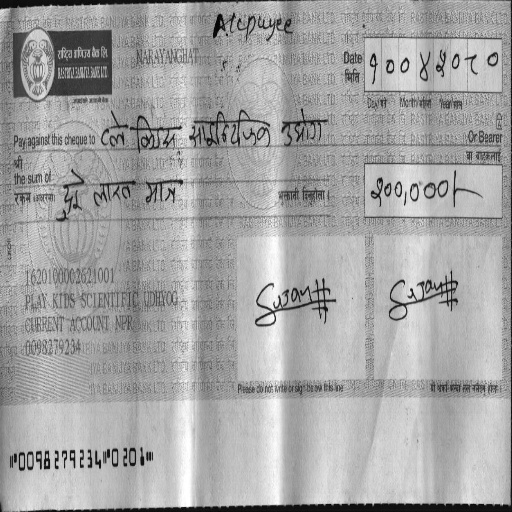 A/c payee
राष्ट्रिय बाणिज्य बैंक लि
RASTRIYA BANIJYA BANK LTD.
NARAYANGHAT
Date
मिति
१००४२०८०
Day/गते Month/महिना Year/साल
Pay against this cheque to प्ले किड्स साइन्टिफिक उद्योग
Or Bearer
श्री
वा वाहकलाई
the sum of
रकम (अक्षरमा) दुई लाख मात्र
भुक्तानी दिनुहोला।
२००,०००/-
1620100002621001
PLAY KIDS SCIENTIFIC UDHYOG
CURRENT ACCOUNT NPR
0098279234
Sujan
Sujan
Please do not write or sign below this line
⑈0098279234⑈0201⑈